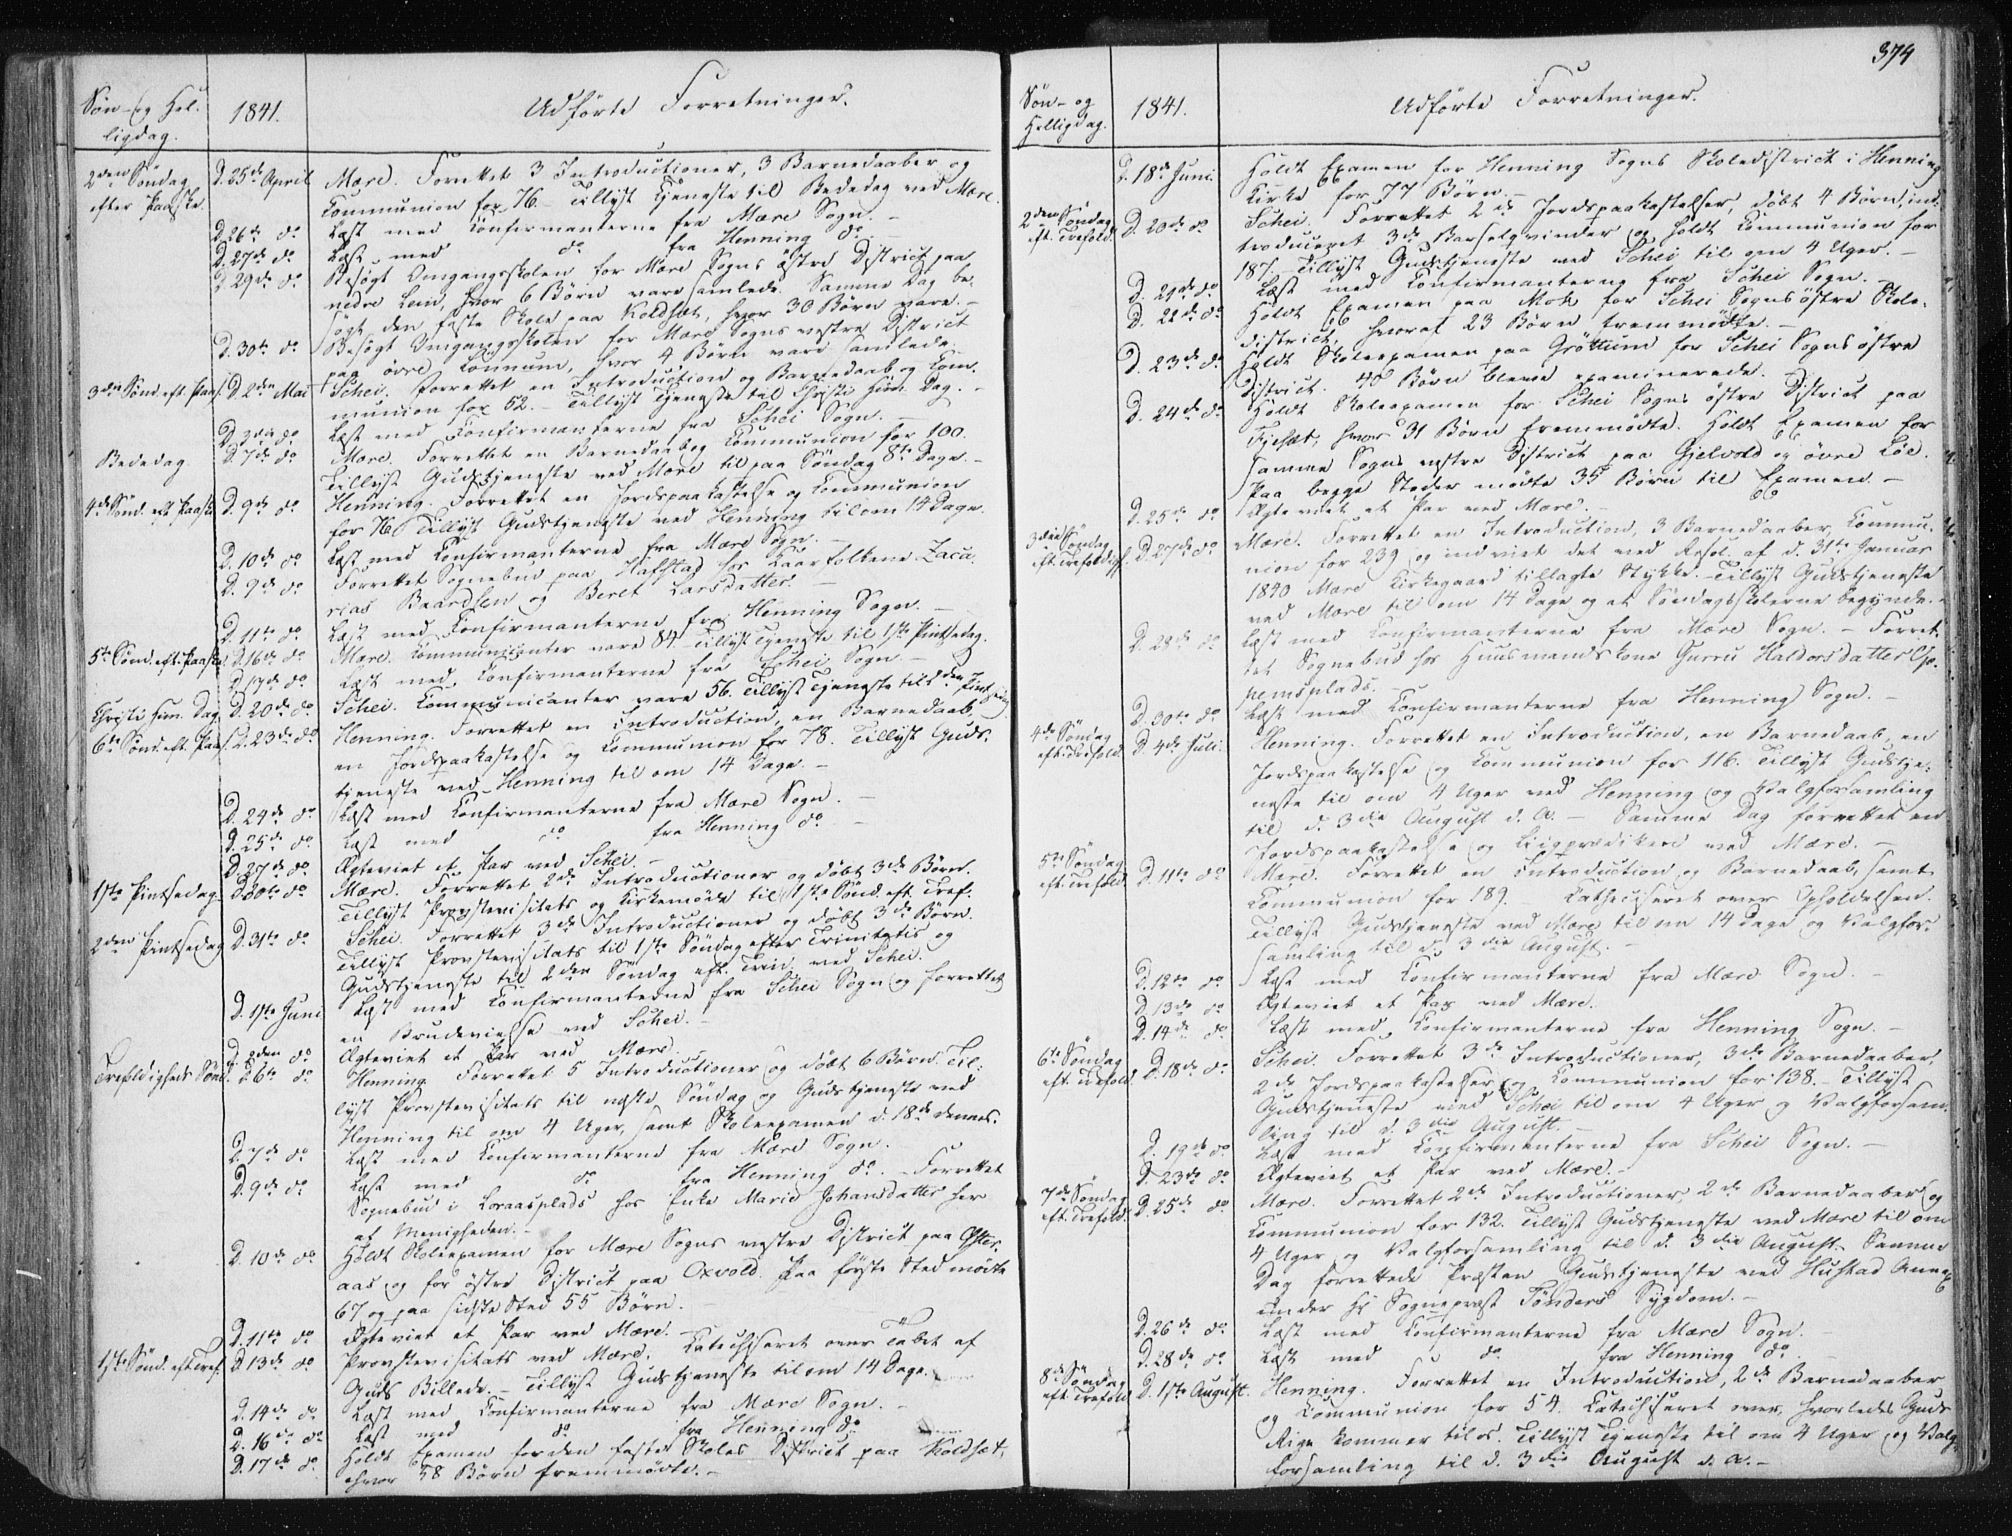 Søn- og Hel-
ligdag.
1841.
Udførte Forretninger.
2den Søndag
efter Paaske.
D. 25de April
Mære. Forrettet 3 Introductioner, 3 Barnedaaber og
Communion for 76. – Tillyst Tjeneste til Bededag ved Mære.
D. 26de do Læst med Confirmanterne fra Mære Sogn. –
D. 27de do Læst med do fra Henning do. –
D. 29de do Besøgt Omgangsskolen for Mære Sogns østre District paa
nedre Lein, hvor 6 Børn vare samlede. Samme Dag be-
søgt den faste Skole paa Koldsæt, hvor 30 Børn vare. –
D. 30te do Besøgt Omgangsskolen for Mære Sogns vestre District
paa øvre, hvor 4 Børn vare samlede.
3die Sønd. eft. Paas. D. 2den Mai Schei. Forrettet en Introduction og Barnedaab og Com-
munion for 52. – Tillyst Tjeneste til Christi Him. Dag. –
D. 3die do Læst med Confirmanterne fra Schei Sogn. –
Bededag. D. 7de do Mære. Forrettet en Barnedaab og Communion for 100.
Tillyst Gudstjeneste ved Mære til paa Søndag 8te Dage. –
4de Sønd. eft. Paaske D. 9de do Henning. Forrettet en Jordspaakastelse og Communion
for 76. Tillyst Gudstjeneste ved Henning til om 14 Dage.
D. 10de do Læst med Confirmanterne fra Mære Sogn. –
D. 9de do Forrettet Sognebud paa Hafstad hos Kaarfolkene Zaca-
rias Baardsen og Beret Larsdatter. –
D. 11te do Læst med Confirmanterne fra Henning Sogn. –
5te Sønd. eft. Paaske D. 16de do Mære. Communicanter vare 84. – Tillyst Tjeneste til 1ste Pintsedag.
D. 17de do Læst med Confirmanterne fra Schei Sogn. –
Christi Him. Dag D. 20de do Schei. Communicanter vare 56. Tillyst Tjeneste til 2den Pintsedag
6te Sønd. eft. Paas. D. 23de do Henning. Forrettet en Introduction, en Barnedaab,
en Jordspaakastelse og Communion for 78. Tillyst Guds-
tjeneste ved Henning til om 14 Dage. –
D. 24de do Læst med Confirmanterne fra Mære Sogn. –
D. 25de do Læst med do fra Henning do –
D. 27de do Ægteviet et Par ved Schei. –
1ste Pintsedag. D. 30te do Mære. Forrettet 2de Introductioner og døbt 3de Børn.
Tillyst Provstevisitats og Kirkemøde til 1ste Sønd. eft. Tref.
2den Pintsedag D. 31te do Schei. Forrettet 3de Introductioner og døbt 3de Børn.
Tillyst Provstevisitats til 1ste Søndag efter Trinitatis og
Gudstjeneste til 2den Søndag eft. Trin. ved Schei.
D. 1ste Juni Læst med Confirmanterne fra Schei Sogn og forrettet
en Brudevielse ved Schei. –
D. 2den do Ægteviet et Par ved Mære. –
Trefoldigheds Sønd. D. 6te do Henning. Forrettet 5 Introductioner og døbt 6 Børn. Til-
lyst Provstevisitats til næste Søndag og Gudstjeneste ved
Henning til om 4 Uger, samt Skoleexamen d. 18de dennes.
D. 7de do Læst med Confirmanterne fra Mære Sogn.
D. 9de do Læst med do fra Henning do. – Forrettet
Sognebud i Loraasplads hos Enke Marie Johansdatter her
af Menigheden. –
D. 10de do Holdt Skoleexamen for Mære Sogns vestre District paa Øster-
aas og for østre District paa Oxvold. Paa første Sted mødte
67 og paa sidste Sted 55 Børn. –
D. 11te do Ægteviet et Par ved Mære. –
1ste Sønd. eft. Tref. D. 13de do Provstevisitats ved Mære. Catechiseret over Tabet af
Guds Billede. – Tillyst Gudstjeneste til om 14 Dage.
D. 14de do Læst med Confirmanterne fra Mære Sogn. –
D. 16de do Læst med do fra Henning do
D. 17de do Holdt Examen for den faste Skoles District paa Koldsæt,
hvor 58 Børn fremmødte. –
374
Søn- og
Helligdag.
1841.
Udførte Forretninger.
D. 18de Juni. Holdt Examen for Henning Sogns Skoledistrict i Henning
Kirke for 77 Børn. –
2den Søndag
eft. Trefold. D. 20de do Schei. Forrettet 2de Jordspaakastelser, døbt 4 Børn, in-
troduceret 3de Barselqvinder og holdt Communion for
187. Tillyst Gudstjeneste ved Schei til om 4 Uger. –
D. 21de do Læst med Confirmanterne fra Schei Sogn. –
D. 22de do Holdt Examen paa Mok for Schei Sogns østre Skole-
district, hvoraf 23 Børn fremmødte. –
D. 23de do Holdt Skoleexamen paa Grøttum for Schei Sogns østre
District. 40 Børn bleve examinerede. –
D. 24de do Holdt Skoleexamen for Schei Sogns østre District paa
hvor 31 Børn fremmødte. Holdt Examen for
samme Sogns vestre District paa Gjelvold og øvre Löe.
Paa begge Steder mødte 35 Børn til Examen. –
D. 25de do Ægteviet et Par ved Mære. –
3die Søndag
eft. Trefoldigh. D. 27de do Mære. Forrettet en Introduction, 3 Barnedaaber, Commu-
nion for 239 og indviet det ved Resol. af d. 31te Januar
1840 Mære Kirkegaard tillagte Stykke. – Tillyst Gudstjeneste
ved Mære til om 14 Dage og at Søndagsskolerne begynde. –
D. 28de do Læst med Confirmanterne fra Mære Sogn. – Forret-
tet Sognebud hos Huusmandskone Gurru Haldorsdatter
D. 30te do Læst med Confirmanterne fra Henning Sogn. –
4de Søndag
eft. Trefold. D. 4de Juli. Henning. Forrettet en Introduction, en Barnedaab, en
Jordspaakastelse og Communion for 116. Tillyst Gudstje-
neste til om 4 Uger ved Henning og Valgforsamling
til d. 3die August d. A. – Samme Dag forrettet en
Jordspaakastelse og Liigprædiken ved Mære. –
5te Søndag
eft. Trefold. D. 11te do Mære. Forrettet en Introduction og Barnedaab, samt
Communion for 189. Catheciseret over Opholdelsen.
Tillyst Gudstjeneste ved Mære til om 14 Dage og Valgfor-
samling til d. 3die August. –
D. 12te do Læst med Confirmanterne fra Mære Sogn. –
D. 13de do Ægteviet et Par ved Mære.
D. 14de do Læst med Confirmanterne fra Henning Sogn. –
6te Søndag
eft. Trefold. D. 18de do Schei. Forrettet 3de Introductioner, 3de Barnedaaber,
2de Jordspaakastelser og Communion for 138. – Tillyst
Gudstjeneste ved Schei til om 4 Uger og Valgforsam-
ling til d. 3die August. –
D. 19de do Læst med Confirmanterne fra Schei Sogn. –
D. 23de do Ægteviet et Par ved Mære. –
7de Søndag
eft. Trefold. D. 25de do Mære. Forrettet 2de Introductioner, 2de Barnedaaber og
Communion for 132. Tillyst Gudstjeneste ved Mære til om
4 Uger og Valgforsamling til d. 3die August. Samme
Dag forrettede Præsten Gudstjeneste ved Hustad Annex
under Hr Sognepræst Tønders Sygdom. –
D. 26de do Læst med Confirmanterne fra Mære Sogn. –
D. 28de do Læst med do fra Henning do –
8de Søndag
eft. Trefold. D. 1ste August. Henning. Forrettet en Introduction, 2de Barnedaaber
og Communion for 54. Catechiseret over, hvorledes Guds
Rige kommer til os. Tillyst Tjeneste til om 4 Uger og Valg-
forsamling til d. 3die August d. A. –